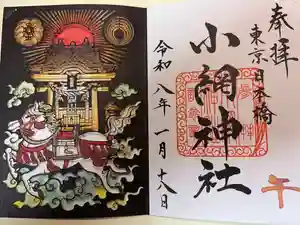 奉拝
東京日本橋
小網神社
令和八年一月十八日
午